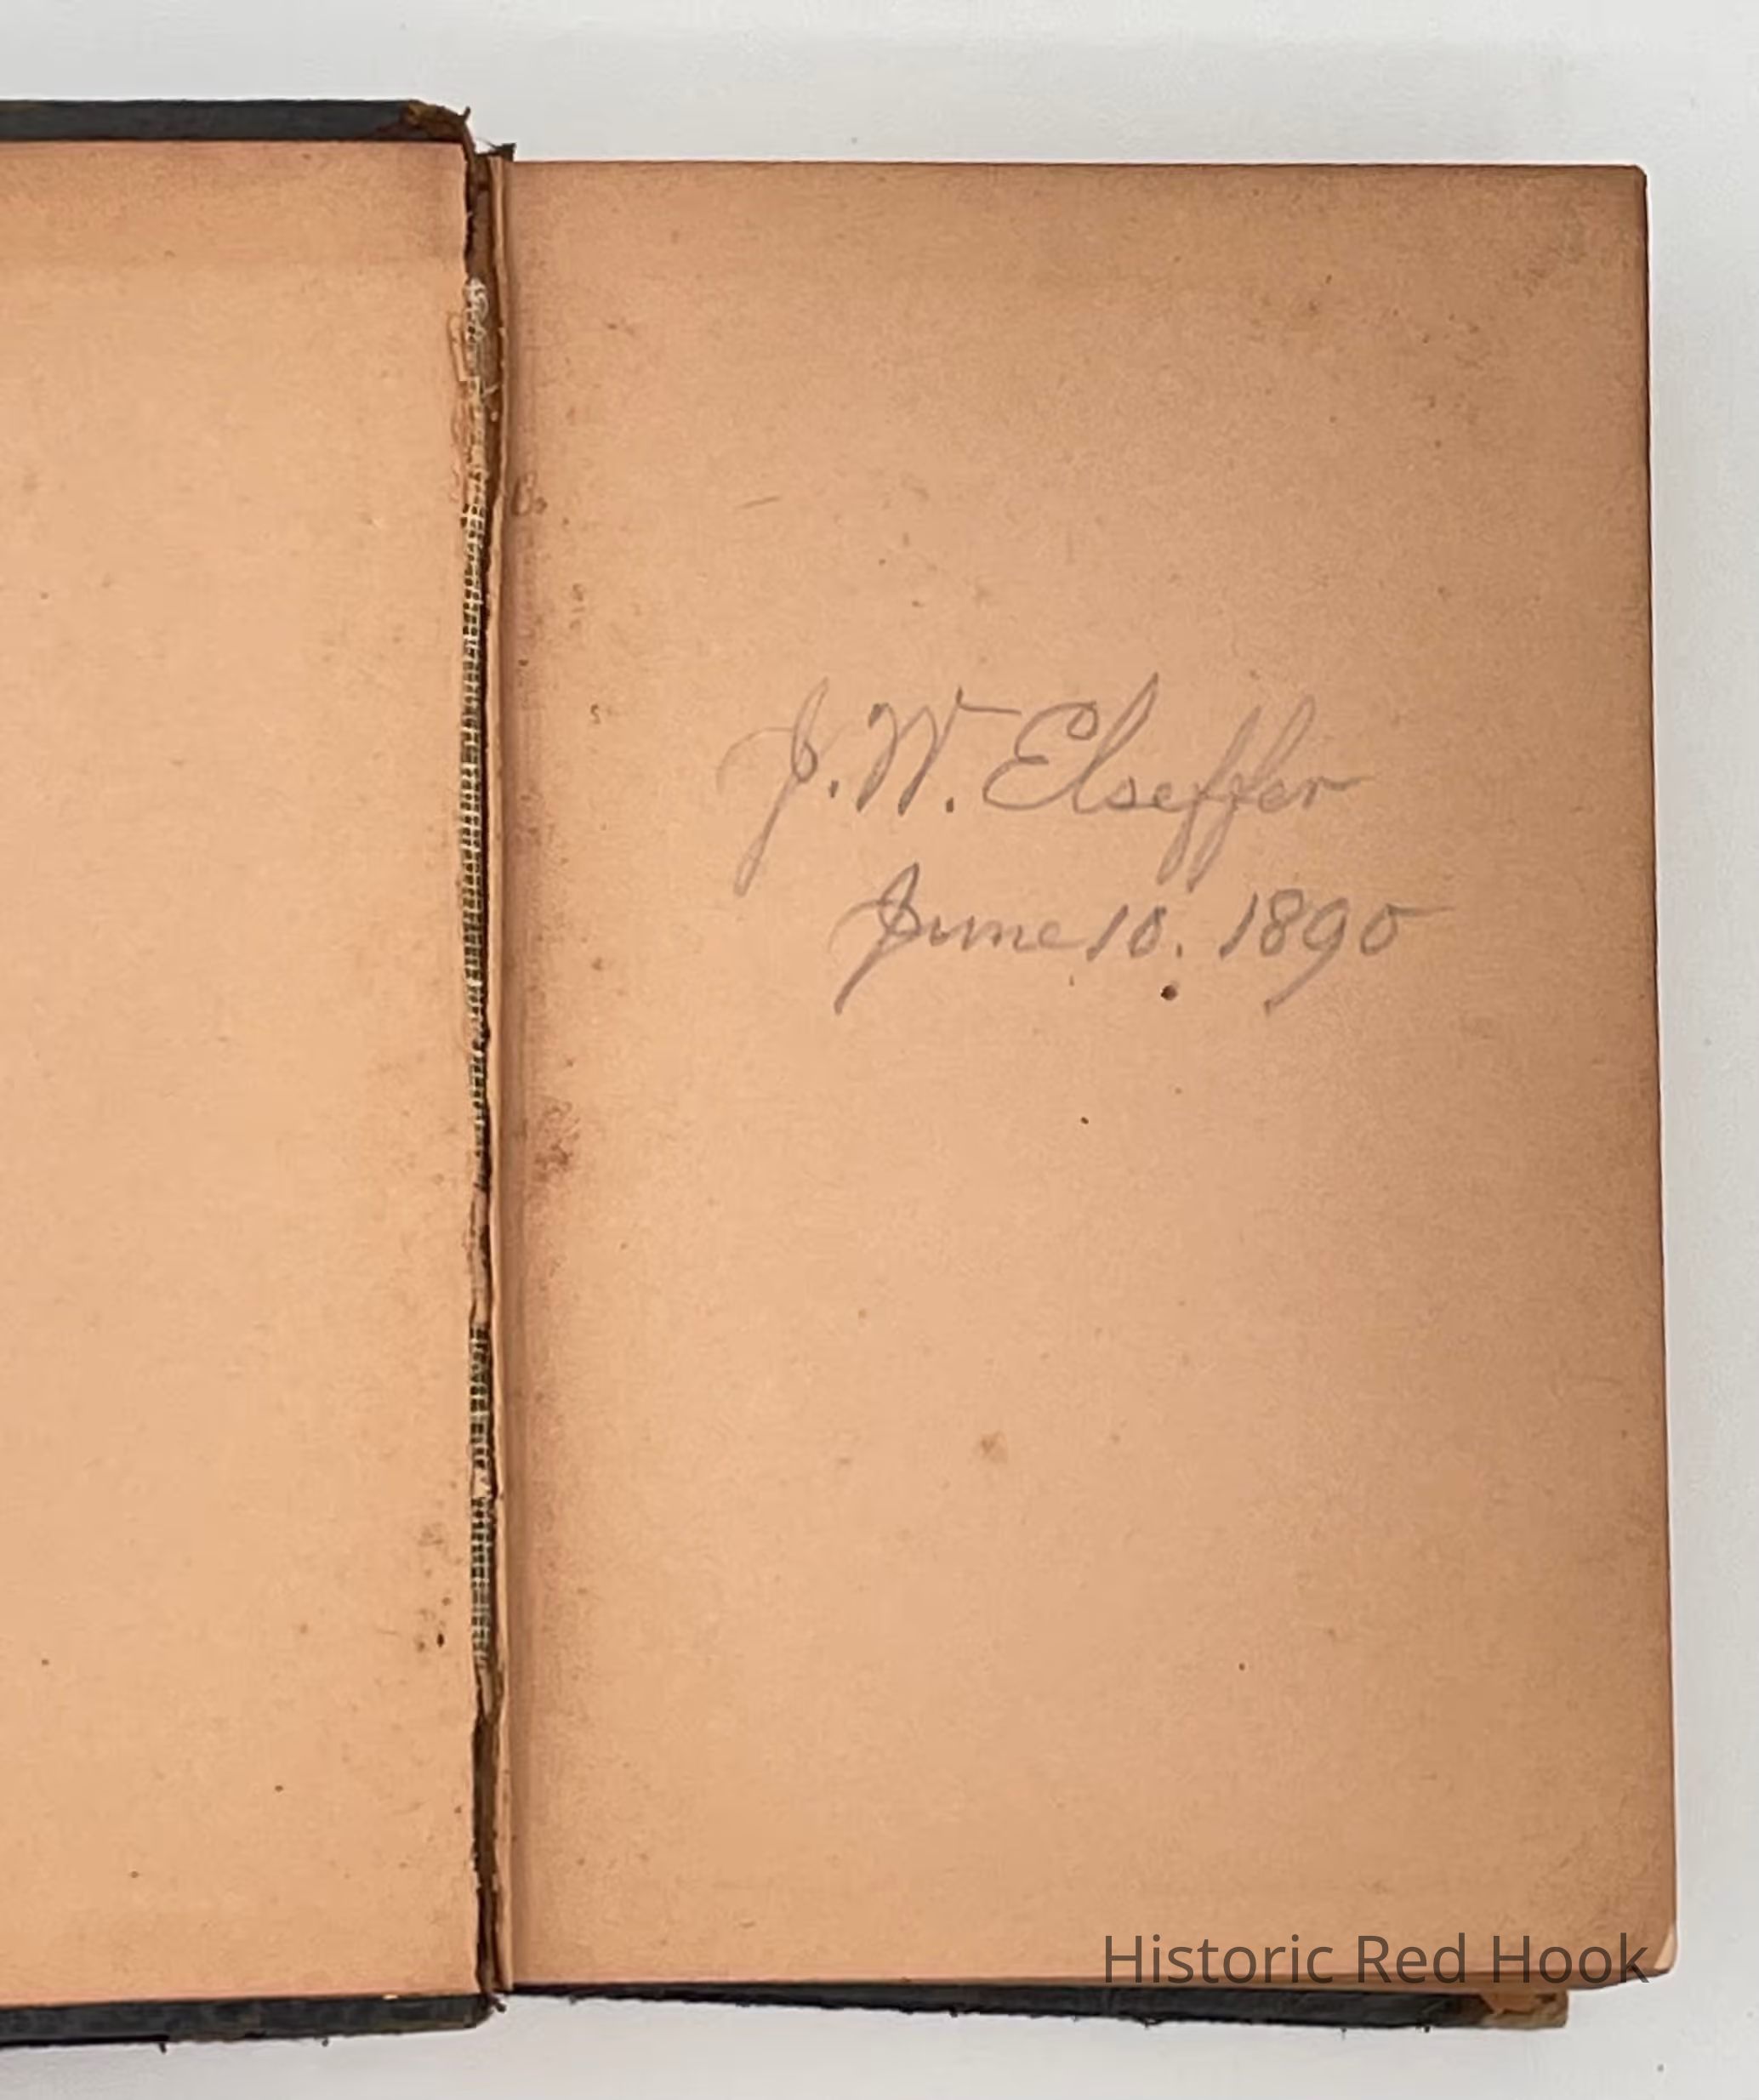 J. W. Elseffer
June 10. 1890
Historic Red Hook